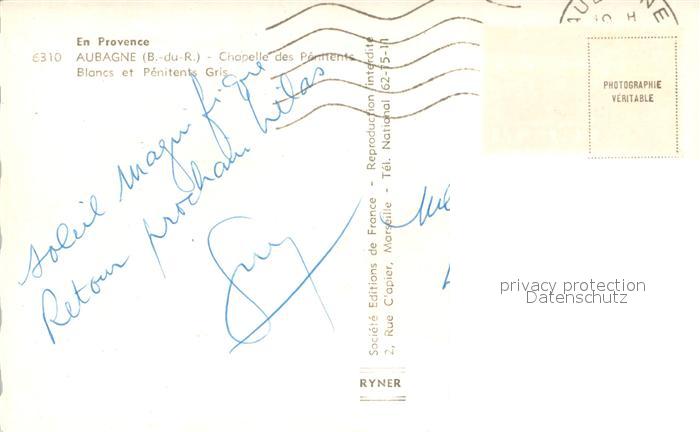 En Provence
6310 AUBAGNE (B.-du-R.) - Chapelle des Pénitents
Blancs et Pénitents Gris.
soleil magnifique
Retour prochain hélas
Guy
Société Editions de France - Reproduction interdite
2, Rue C'apier, Marseille - Tél. National 62-75-11
RYNER
AUBAGNE
10 H
PHOTOGRAPHIE
VÉRITABLE
privacy protection
Datenschutz